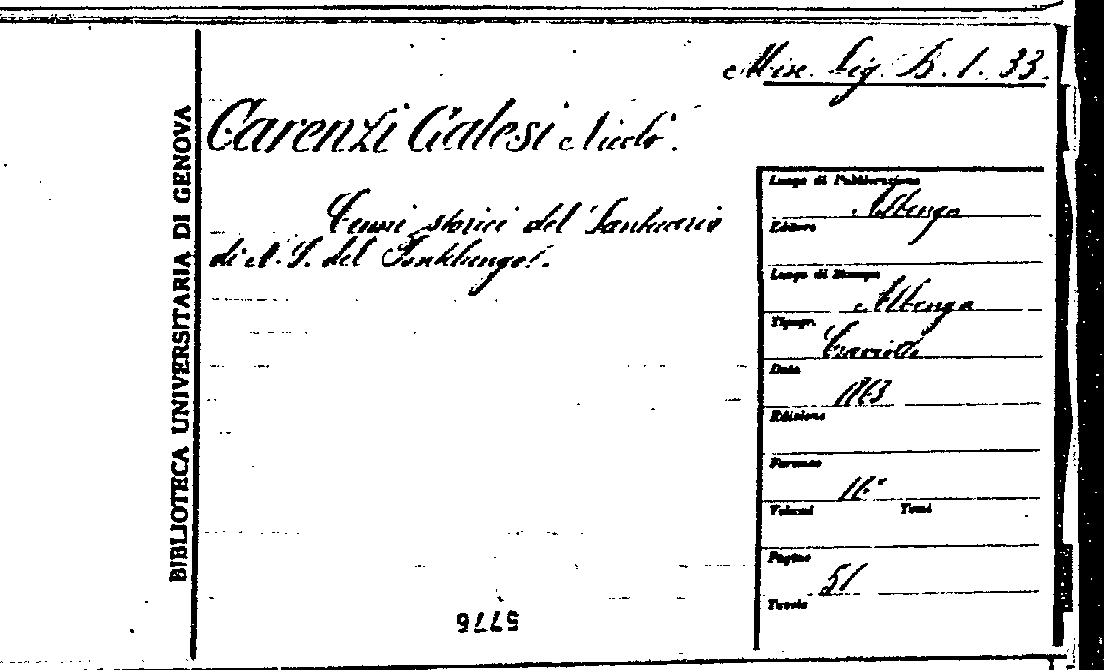 Misc. Lig. B. 1. 33.
BIBLIOTECA UNIVERSITARIA DI GENOVA
Carenzi Galesi Nicolò.
Cenni storici del Santuario
di N. S. del Pontelungo.
Luogo di Pubblicazione
Albenga
Editore
Luogo di Stampa
Albenga
Tipogr.
Craviotto
Data
Edizione
Formato
16°
Volumi Tomi
Pagine
51
Tavole
5776